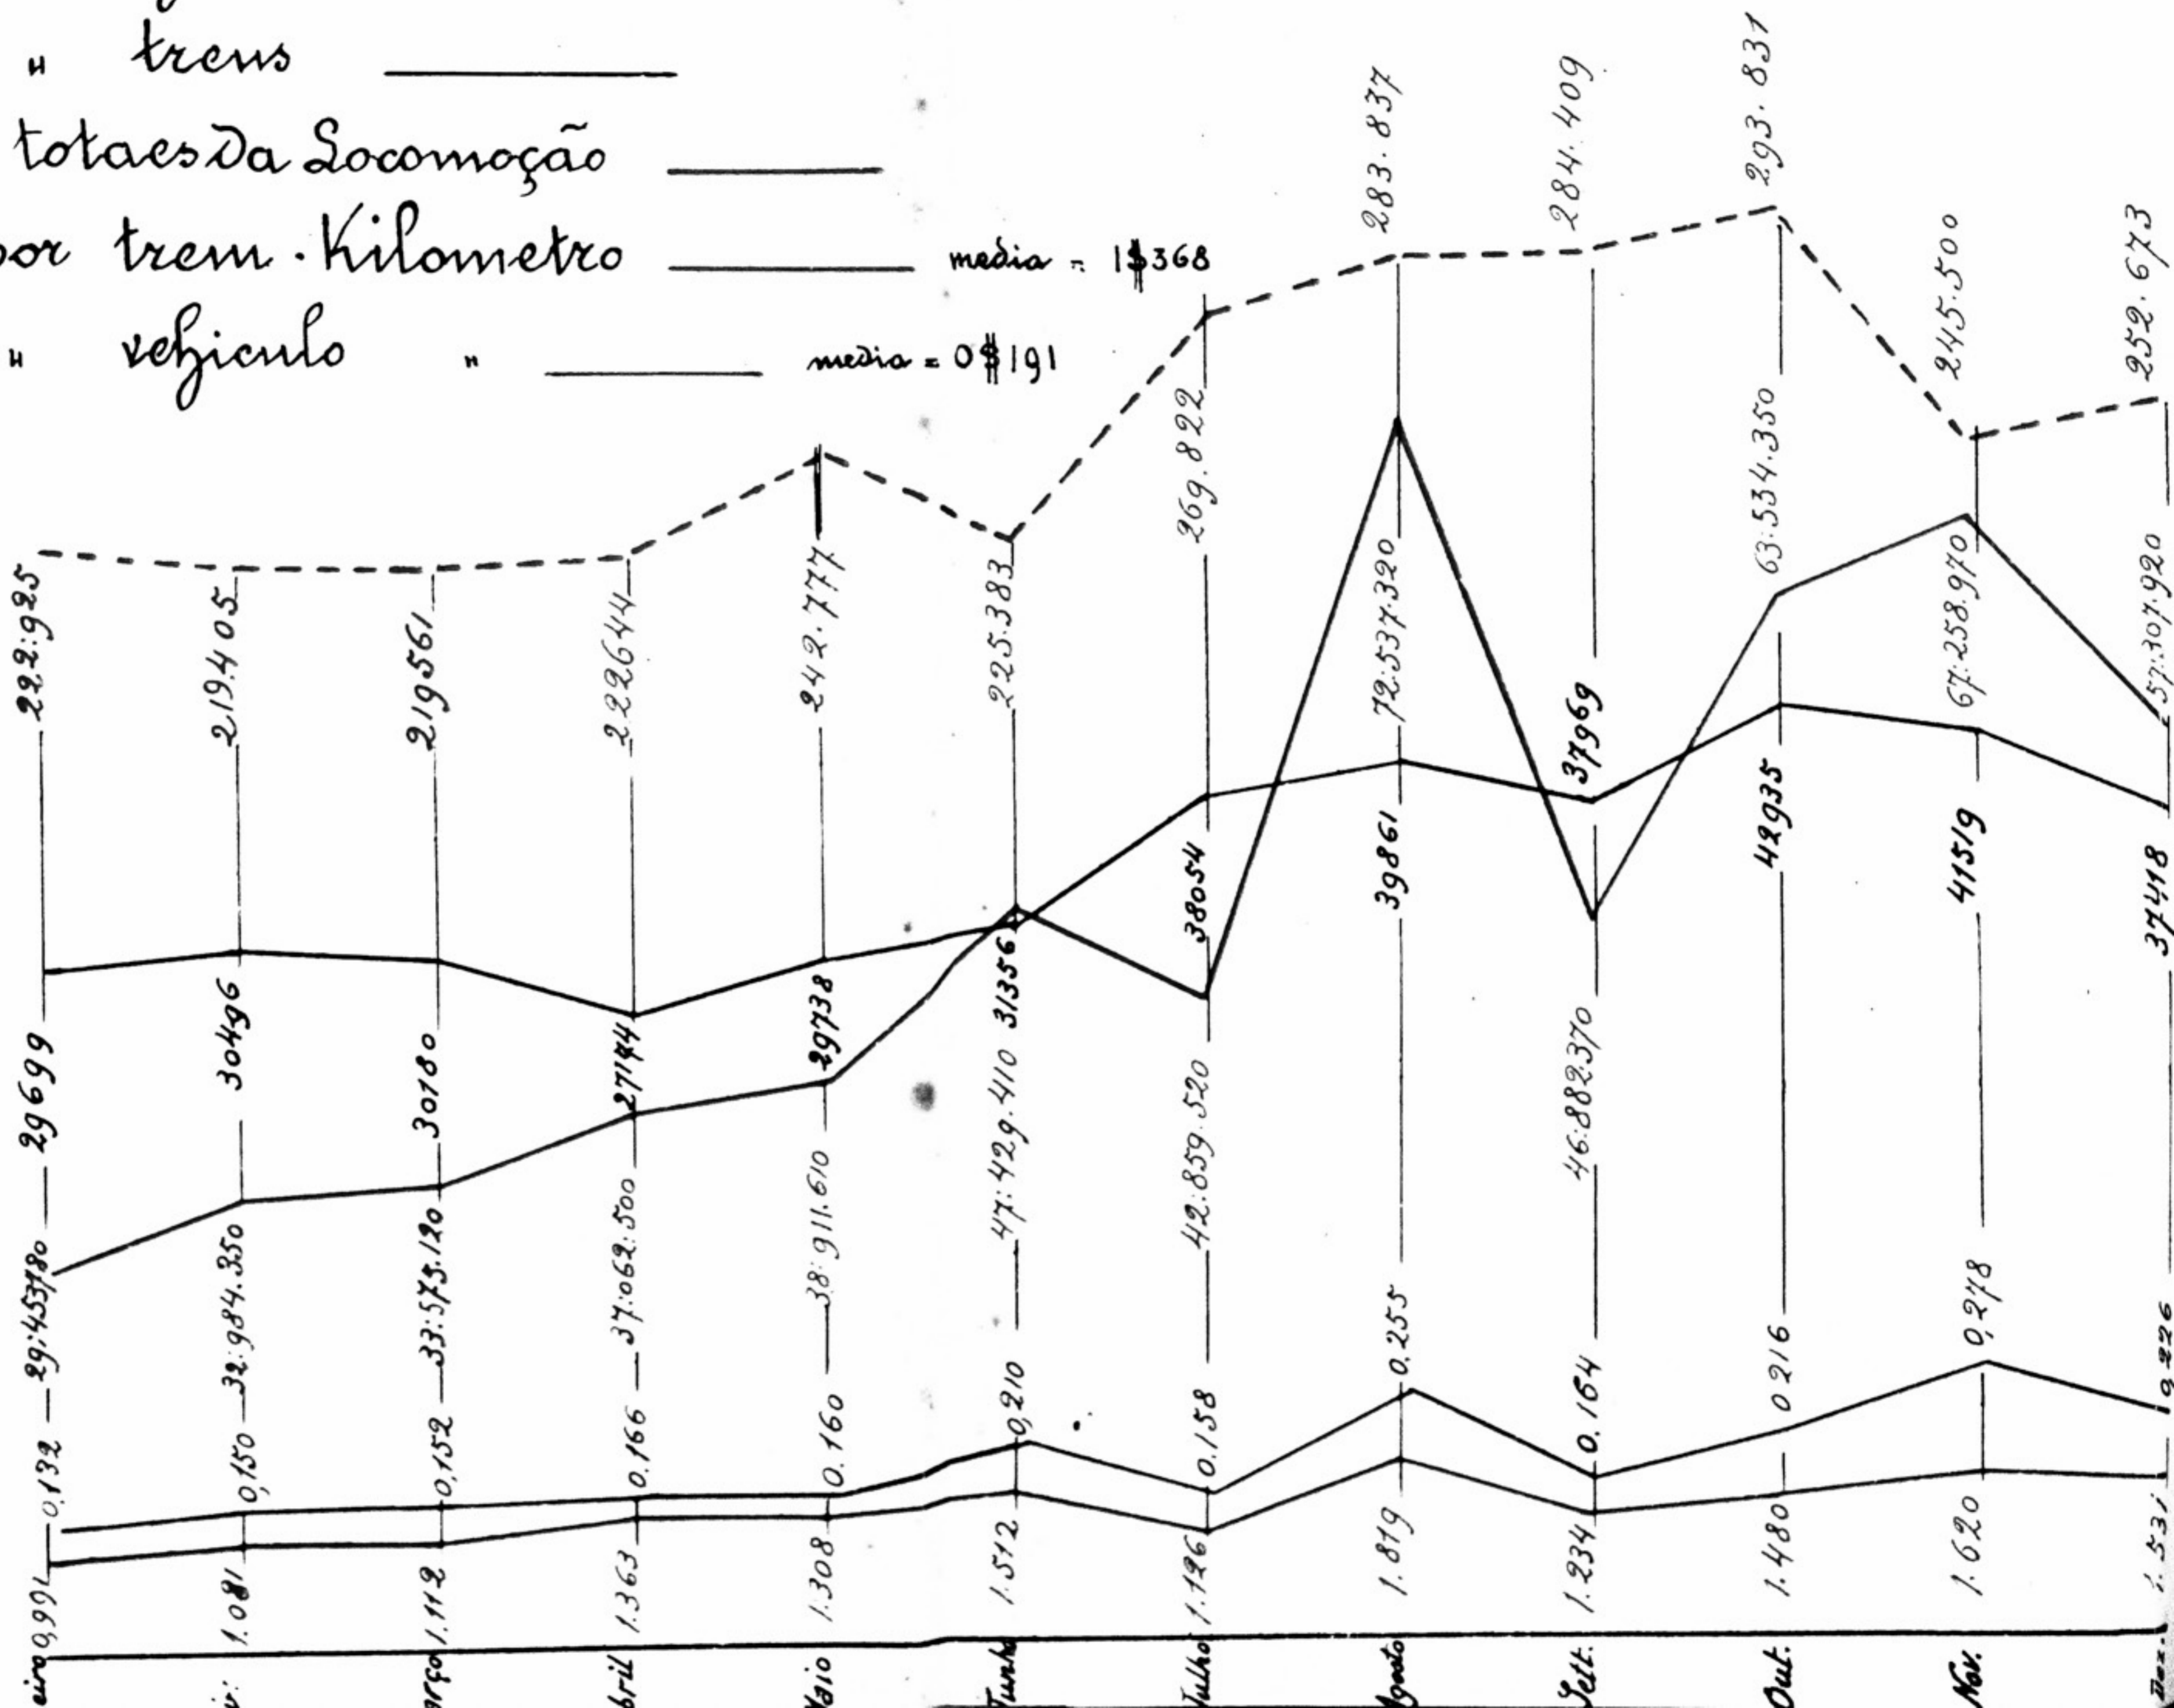 " trens
totaes da Locomoção
por trem. Kilometro media = 1$368
" vehiculo " media = 0$191
222:925
219.405
219561
222644
242.777
225.383
269.822
283.837
284.409
293.831
245.500
252.673
29699
30496
30180
27144
29738
31356
38054
39861
37969
42935
41519
37418
29:453780
32:984.350
33:575.120
37:062:500
38:911.610
47:429.410
42:859.520
72:537.320
46:882370
63:534.350
67:258.970
57:307.920
0,132
0,150
0,152
0.166
0.160
0,210
0.158
0.255
0.164
0 216
0,278
0,226
0,991
1.081
1.112
1.363
1.308
1.512
1.126
1.819
1.234
1.480
1.620
1.531
eiro
v:
arço
bril
Maio
Junho
Julho
Agosto
Sett.
Out.
Nov.
Dez.